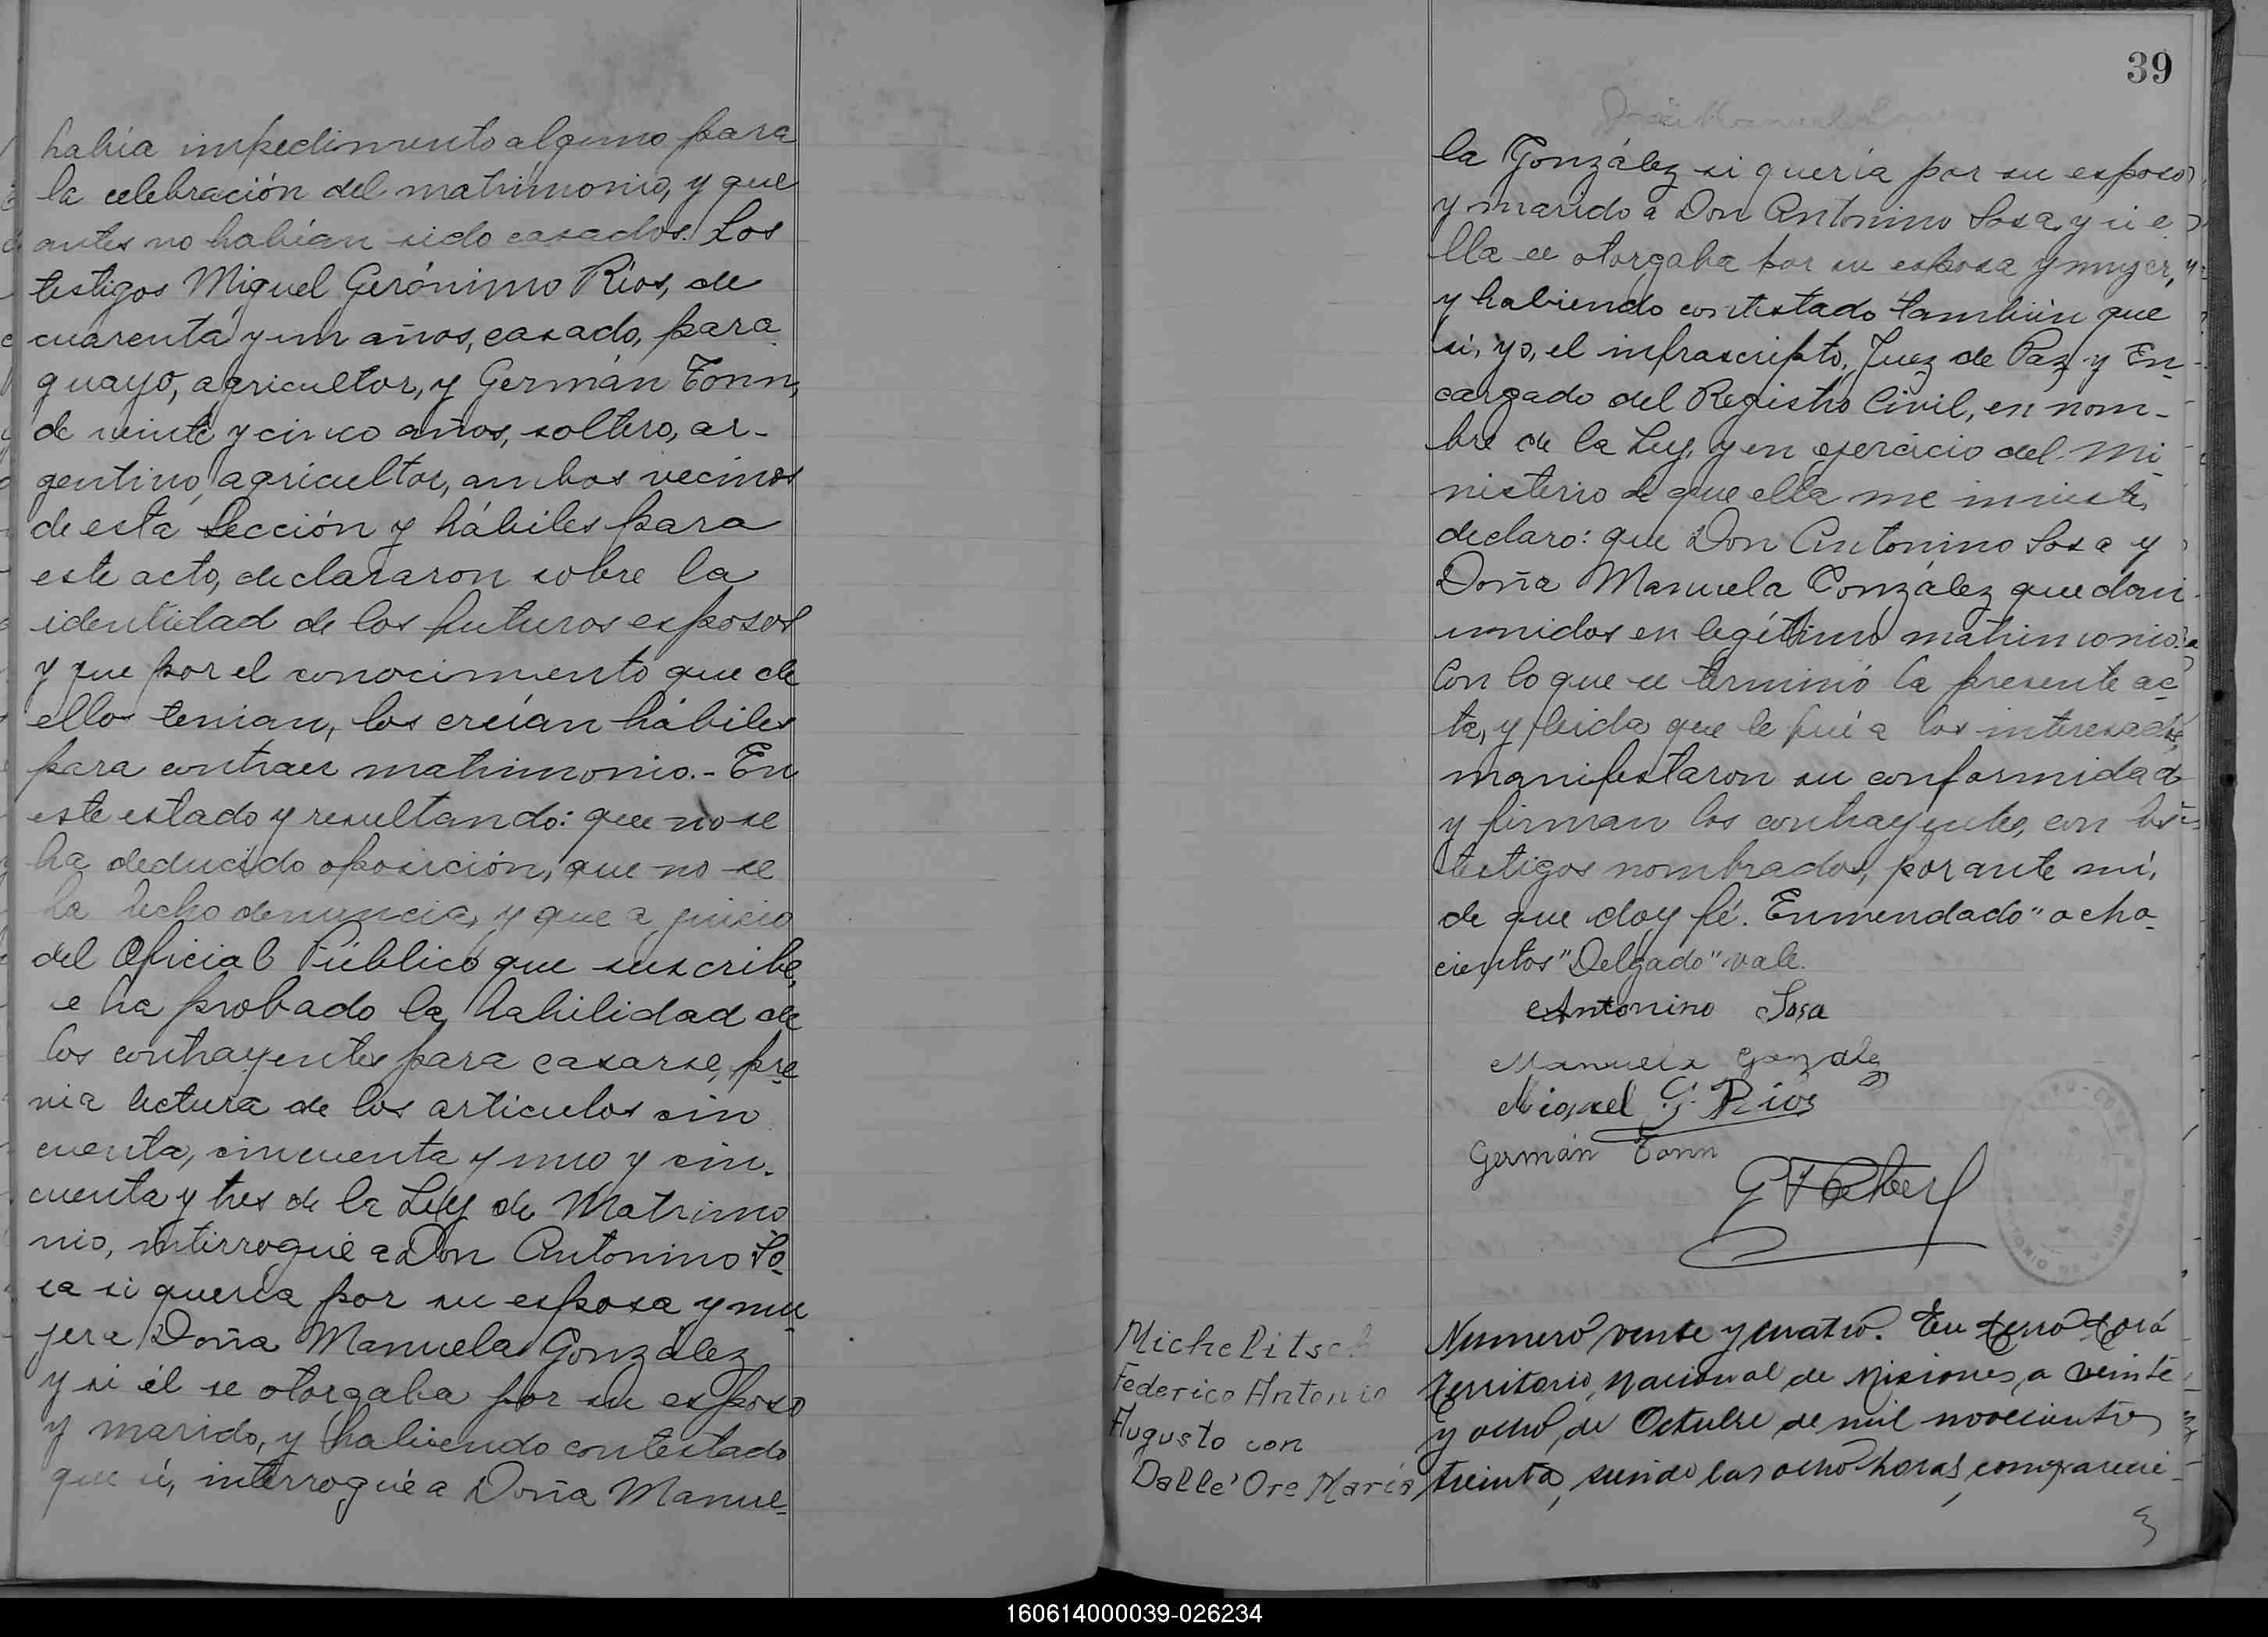 había impedimento alguno para
la celebración del matrimonio, y que
antes no habían sido casados. Los
testigos Miguel Gerónimo Ríos, de
cuarenta y un años, casado, para
guayo, agricultor, y Germán Tonn,
de veinte y cinco años, soltero, ar-
gentino, agricultor, ambos vecinos
de esta Sección y hábiles para
este acto, declararon sobre la
identidad de los futuros esposos
y que por el conocimiento que de
ellos tenían, los creían hábiles
para contraer matrimonio.- En
este estado y resultando: que no se
ha deducido oposición, que no se
ha hecho denuncia, y que a juicio
del Oficial Público que suscribe,
se ha probado la habilidad de
los contrayentes para casarse, pre
via lectura de los artículos cin
cuenta, cincuenta y uno y cin-
cuenta y tres de la Ley de Matrimo
nio, interrogué a Don Antonino So-
sa si quería por su esposa y mu
jer a Doña Manuela González
y si él se otorgaba por su esposo
y marido, y habiendo contestado
que sí, interrogué a Doña Manue-
39
la González si quería por su esposo
y marido a Don Antonino Sosa y si e
lla se otorgaba por su esposa y mujer,
y habiendo contestado también que
si, yo, el infrascripto, Juez de Paz y En-
cargado del Registro Civil, en nom-
bre de la Ley, y en ejercicio del Mi
nisterio de que ella me inviste,
declaro: que Don Antonino Sosa y
Doña Manuela González quedan
unidos en legítimo matrimonio.
Con lo que se terminó la presente ac
ta, y leída que le fué a los interesados,
manifestaron su conformidad
y firman los contrayentes, con los
testigos nombrados, por ante mí,
de que doy fé. Enmendado "ocho-
cientos" Delgado" vale.
Antonino Sosa
Manuela Gonzalez
Miguel G. Rios
Germán Tonn
Michelitsch
Federico Antonio
Augusto con
Dalle' Ore María
Numero veinte y cuatro. En Cerro Corá
Territorio Nacional de Misiones, a veinte
y ocho de Octubre de mil novecientos
treinta, siendo las ocho horas, comparecie-
160614000039-026234